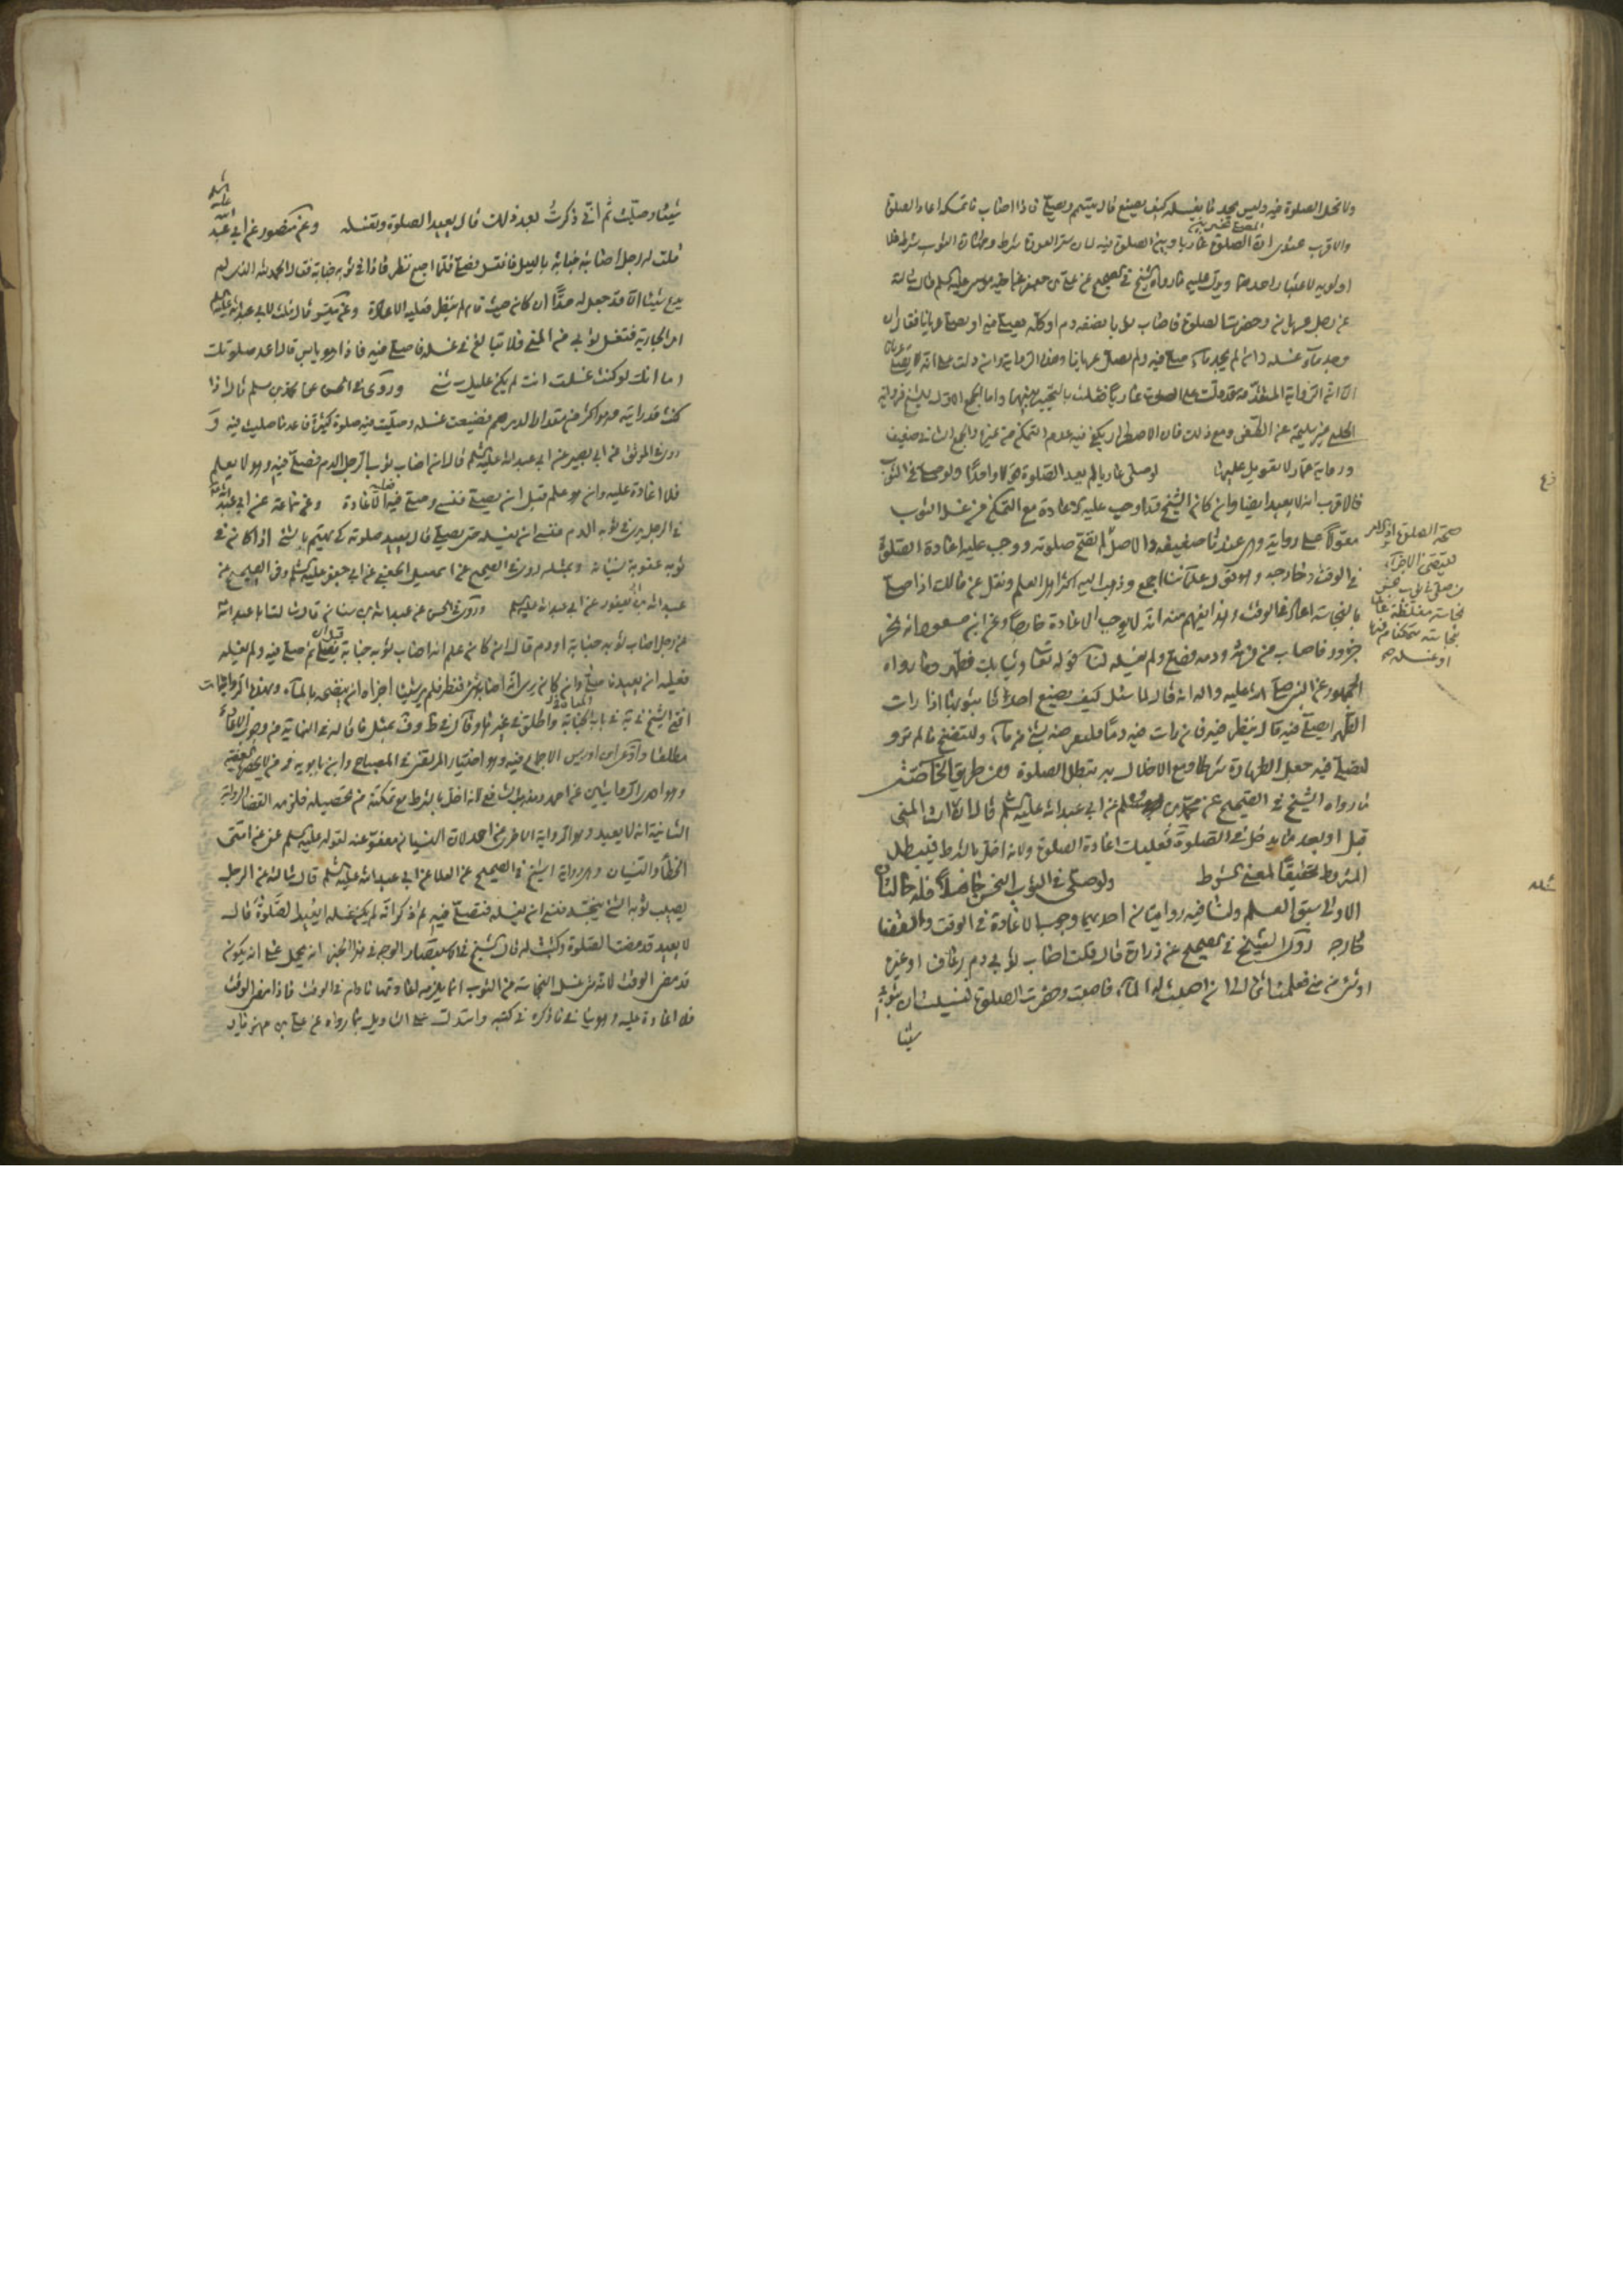 ولا تحل الصلوة فيه وليس يجد ما يغسله كيف يصنع قال يتيمم ويصلي فاذا اصاب ماء غسله واعاد الصلوة
والاقرب عندي ان المصلي مخير بين الصلوة عاريا وبين الصلوة فيه لان ستر العورة شرط وطهارة الثوب شرط
اولوية لاعتبار احدهما ويدل عليه ما رواه الشيخ في الصحيح عن علي بن جعفر عن اخيه موسى عليه السلم قال سالته
عن رجل عريان وحضرت الصلوة فاصاب ثوبا نصفه دم او كله يصلي فيه او يصلي عريانا فقال ان
وجد ماء غسله وان لم يجد ماء صلى فيه ولم يصل عريانا وهذه الرواية وان دلت على انه لا يصلي عريانا
الا ان الرواية المتقدمة قد دلت على الصلوة عاريا فقلنا بالتخيير بينهما واما الجمع الاول للشيخ فرواية
الحلبي غير سليمة عن الطعن ومع ذلك فان الاضطرار يكفي فيه عدم التمكن من غيره والجمع الثاني ضعيف
ورواية عمار لا تعويل عليها لو صلى عاريا لم يعد الصلوة قولا واحدا ولو صلى في الثوب
فالاقرب انه لا يعيد ايضا وان كان الشيخ قد اوجب عليه الاعادة مع التمكن من غسل الثوب
معولا على رواية وهي عندنا ضعيفة والاصل لم تصح صلوته ووجب عليه اعادة الصلوة
في الوقت وخارجه وهو قول علمائنا اجمع وذهب اليه اكثر اهل العلم ونقل عن مالك اذا صلى
بالنجاسة اعاد في الوقت وهذا يفهم منه انه لا يوجب الاعادة خارجا وعن ابن مسعود انه نحر
جزورا فاصاب من فرثه ودمه فصلى ولم يغسله لنا قوله تعالى وثيابك فطهر وما رواه
الجمهور عن النبي صلى الله عليه واله انه قال لما سئل كيف يصنع احدانا بثوبها اذا رات
الطهر ايصلي فيه قال ينظر فيه فان رات فيه دما فلتقرصه بشئ من ماء ولتنضح ما لم تر و
لتصلي فيه جعل الطهارة شرطا ومع الاخلال به تبطل الصلوة ومن طريق الخاصة
ما رواه الشيخ في الصحيح عن محمد بن مسلم عن ابي عبد الله عليه السلم قال ان رايت المني
قبل او بعد ما يدخل في الصلوة فعليك اعادة الصلوة ولانه اخل بالشرط فيبطل
المشروط تحقيقا لمعنى الشرط ولو صلى في الثوب النجس جاهلا فله حالتان
الاولى سبق العلم ولنا فيه روايتان احديهما وجوب الاعادة في الوقت
خارجه روى الشيخ في الصحيح عن زرارة قال قلت اصاب ثوبي دم رعاف او غيره
او شئ من مني فعلمت اثره الى ان اصيب له الماء فاصبت وحضرت الصلوة فنسيت ان بثوبي
شيئا
صحة الصلوة
نجاسته متمكنا من
او غسله صح
شيئا وصليت ثم اني ذكرت بعد ذلك قال يعيد الصلوة وتغسله وعن منصور عن ابي عبد الله عليه السلم
قلت له رجل اصابته جنابة بالليل فاغتسل وصلى فلما اصبح نظر فاذا في ثوبه جنابة فقال الحمد لله الذي لم
يدع شيئا الا وقد جعل له حدا ان كان حيث قام لم ينظر فعليه الاعادة وعن ميسر قال قلت لابي عبد الله عليه السلم
امر الجارية فتغسل ثوبي من المني فلا تبالغ في غسله فاصلي فيه فاذا هو يابس قال اعد صلوتك
اما انك لو كنت غسلت انت لم يكن عليك شئ وروى في الحسن عن محمد بن مسلم قال اذا
كنت قد رايته وهو اكثر من مقدار الدرهم فضيعت غسله وصليت فيه صلوة كثيرة فاعد ما صليت فيه و
روى في الموثق عن ابي بصير عن ابي عبد الله عليه السلم قال ان اصاب ثوب الرجل الدم فصلى فيه وهو لا يعلم
فلا اعادة عليه وان هو علم قبل ان يصلي فنسي وصلى فيه فعليه الاعادة وعن سماعة عن ابي عبد الله
في الرجل يرى في ثوبه الدم فنسي ان يغسله حتى يصلي قال يعيد صلوته كي يهتم بالشئ اذا كان في
ثوبه عقوبة لنسيانه وبمثله روى في الصحيح عن اسمعيل الجعفي عن ابي جعفر عليه السلم وفي الصحيح عن
عبد الله بن ابي يعفور عن ابي عبد الله عليه السلم وروى في الحسن عن عبد الله بن سنان قال سالت ابا عبد الله
عن رجل اصاب ثوبه جنابة او دم قال ان كان علم انه اصاب ثوبه جنابة قبل ان يصلي ثم صلى فيه ولم يغسله
فعليه ان يعيد ما صلى وان كان يرى انه اصابه شئ فنظر فلم ير شيئا اجزاه ان ينضحه بالماء وبهذه الروايات
افتى الشيخ في باب الجنابة واطلق في غيرها وقال في ط وف بمثل ما قاله في النهاية من وجوب الاعادة
مطلقا وادعى ابن ادريس الاجماع فيه وهو اختيار المرتضى في المصباح وابن بابويه في من لا يحضره الفقيه
وهو احدى الروايتين عن احمد ومذهب الشافعي لانه اخل بالشرط مع تمكنه من تحصيله فلزمه القضاء الرواية
الثانية انه لا يعيد وهو الرواية الاخرى عن احمد لان النسيان معفو عنه لقوله عليه السلم عفي عن امتي
الخطأ والنسيان وهو رواية الشيخ في الصحيح عن العلا عن ابي عبد الله عليه السلم قال سالته عن الرجل
يصيب ثوبه الشئ ينجسه فنسي ان يغسله فيصلي فيه ثم ذكر انه لم يكن غسله ايعيد الصلوة قال
لا يعيد قد مضت الصلوة وكتبت له قال الشيخ في الاستبصار الوجه في هذا الخبر انه يحمل على انه يكون
قد مضى الوقت لانه متى غسل النجاسة عن الثوب انما يلزمه اعادتها ما دام في الوقت فاذا مضى الوقت
فلا اعادة عليه وهو ينافي ما ذكره في كتبه واستدل على التاويل بما رواه عن علي بن مهزيار